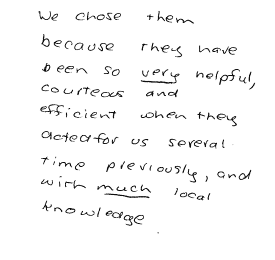 We chose them
because they have
been so very helpful,
courteous and
efficient when they
acted for us several
time previously, and
with much local
knowledge